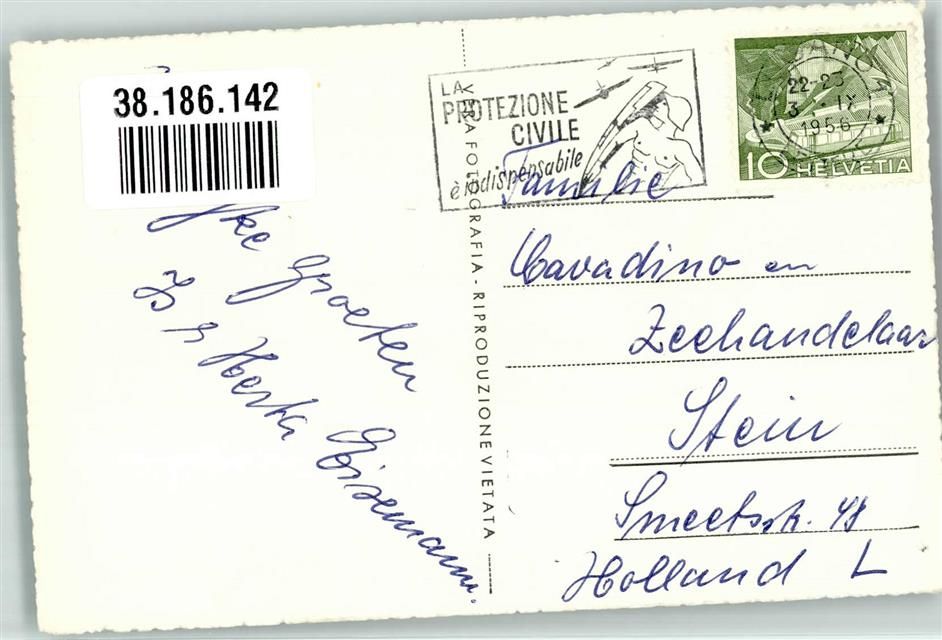 38.186.142
LA
PROTEZIONE
CIVILE
è indispensabile
LUGANO 1
22-23
3. IX
1956
10 HELVETIA
VERA FOTOGRAFIA - RIPRODUZIONE VIETATA
Groeten
Herta Eisemann.
Familie
Cavadino en
Zeehandelaar
Stein
Smeetsstr. 48
Holland L